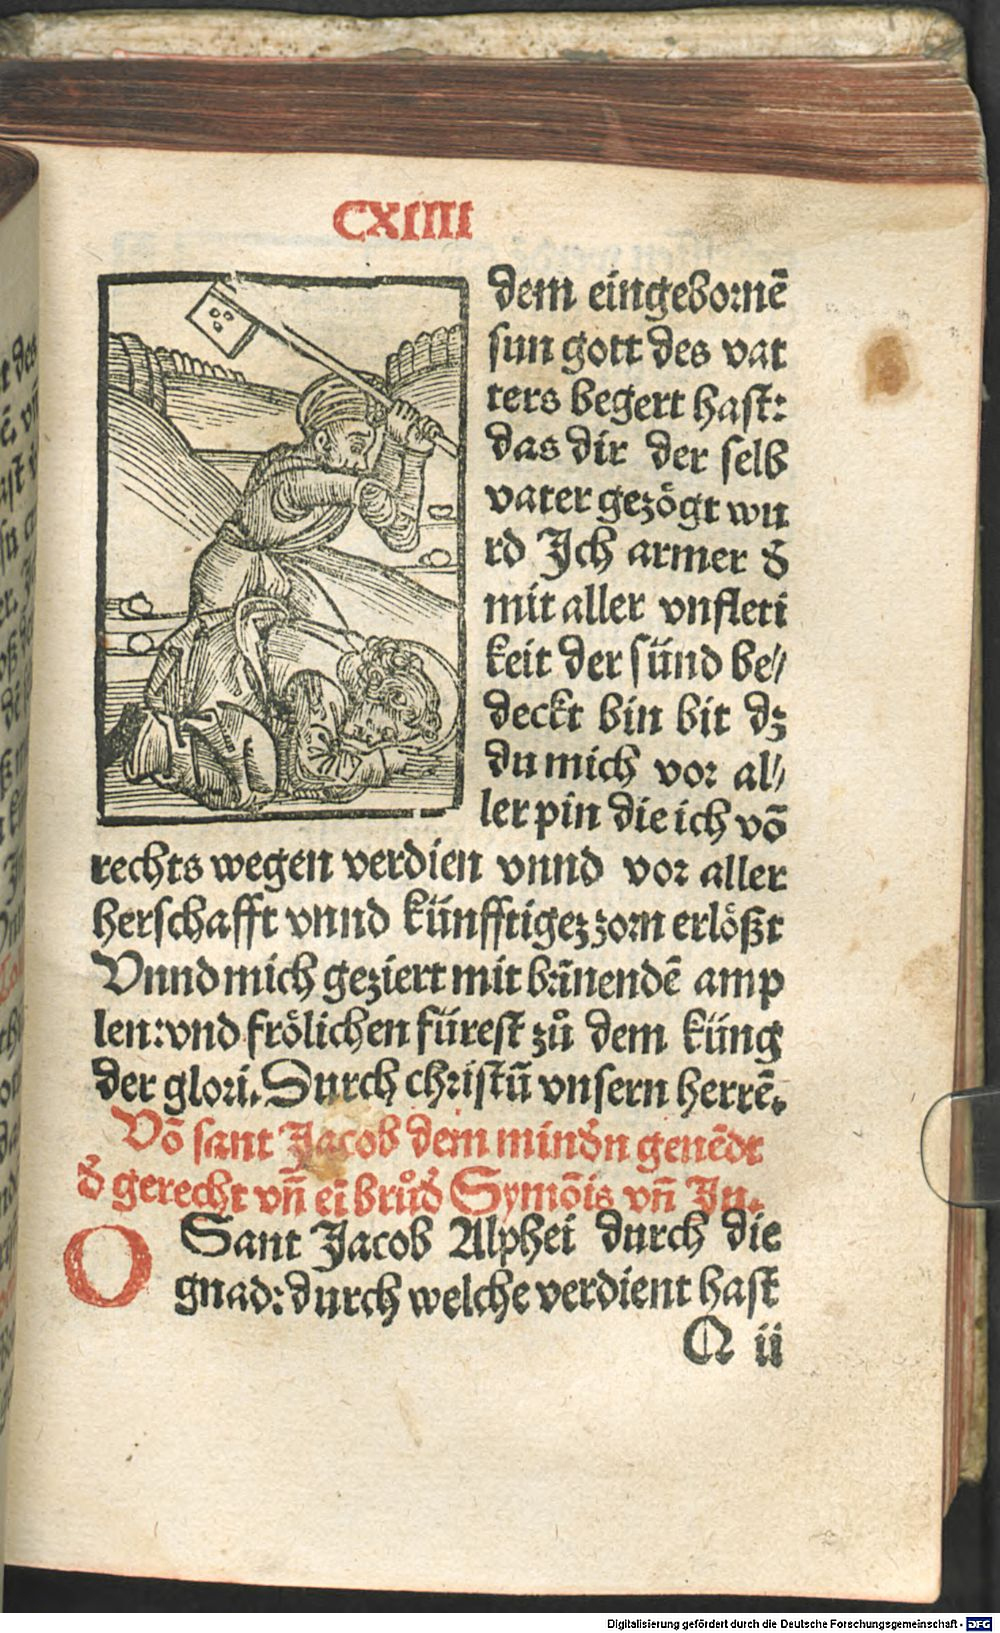 CXIIII
dem eingebornē
sun gott des vat
ters begert hast:
das dir der selb
vater gezögt wu
rd Jch armer đ
mit aller vnfleti
keit der sünd be//
deckt bin bit dz
du mich vor al//
ler pin die ich vō
rechts wegen verdien vnnd vor aller
herschafft vnnd künfftigez zorn erlößt
Vnnd mich geziert mit brīnendē amp
len: vnd frölichen fürest zů dem küng
der glori. Durch christū vnsern herrē.
Vō sant Jacob dem minđn genēdt
đ gerecht vn̄ ei brůđ Symōis vn̄ Ju.
O Sant Jacob Alphei durch die
gnad: durch welche verdient hast
Q ii
Digitalisierung gefördert durch die Deutsche Forschungsgemeinschaft - DFG